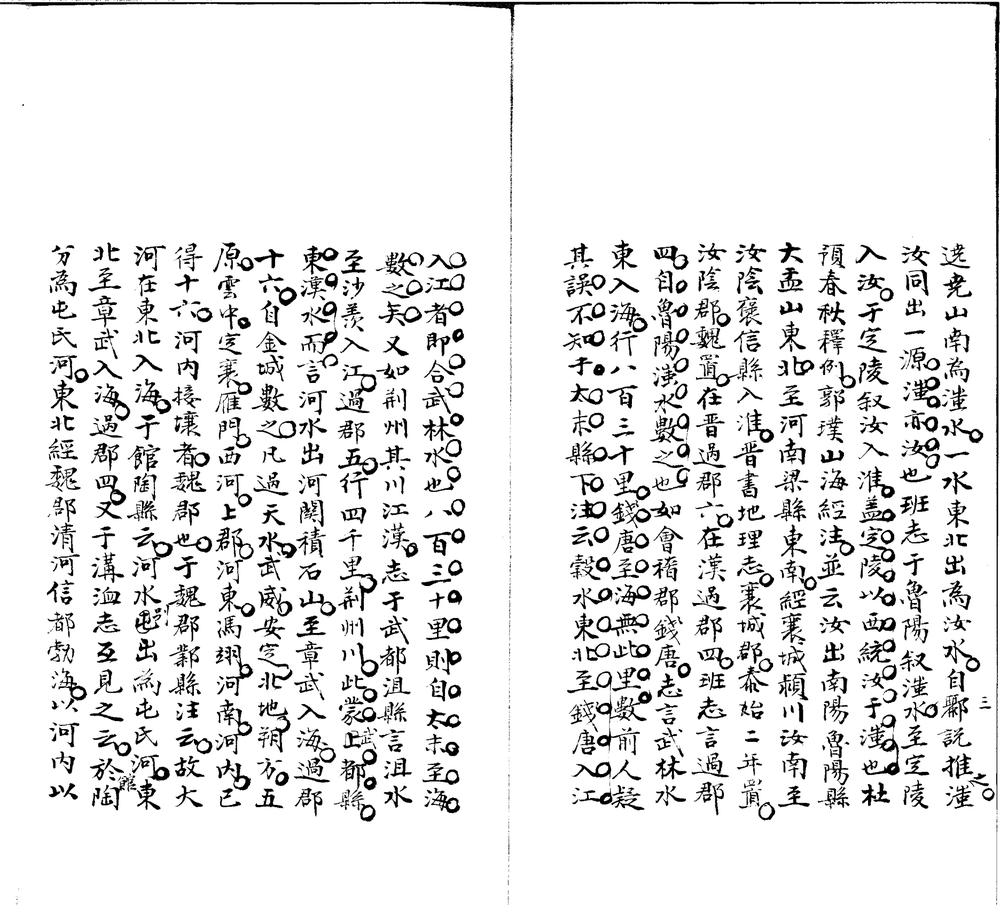 逕堯山南為滍水一水東北出為汝水自酈説推之滍
汝同出一源滍亦汝也班志于魯陽叙滍水至定陵
入汝于定陵叙汝入淮蓋定陵以西統汝于滍也杜
預春秋釋例郭璞山海經注並云汝出南陽魯陽縣
大盂山東北至河南梁縣東南經襄城潁川汝南至
汝陰褒信縣入淮晋書地理志襄城郡泰始二年置
汝陰郡魏置在晋過郡六在漢過郡四班志言過郡
四自魯陽滍水數之也如會稽郡錢唐志言武林水
東入海行八百三十里錢唐至海無此里數前人疑
其誤不知于太末縣下注云穀水東北至錢唐入江
三
入江者即合武林水也八百三十里則自太末至海
數之矣又如荆州其川江漢志于武都沮縣言沮水
至沙羨入江過郡五行四千里荆州川此蒙上武都縣
東漢水而言河水出河關積石山至章武入海過郡
十六自金城數之凡過天水武威安定北地朔方五
原雲中定襄雁門西河上郡河東馮翊河南河内已
得十六河内接壤者魏郡也于魏郡鄴縣注云故大
河在東北入海于館陶縣云河水别出為屯氏河東
北至章武入海過郡四又于溝洫志互見之云於館陶
分為屯氏河東北經魏郡清河信都勃海以河内以